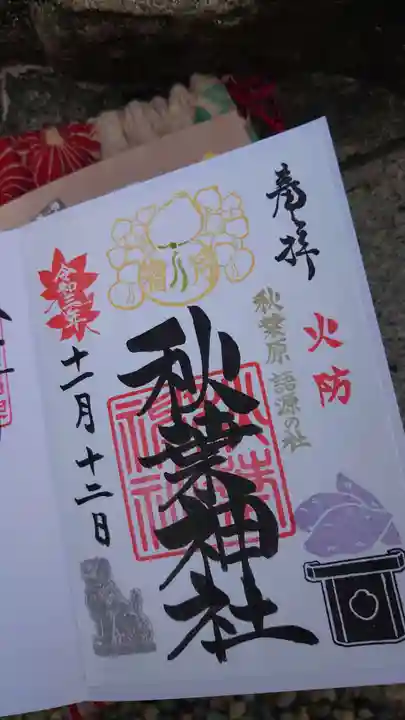 奉拝
火防
秋葉原 語源の社
福禄
秋葉神社
令和三年
十一月十二日